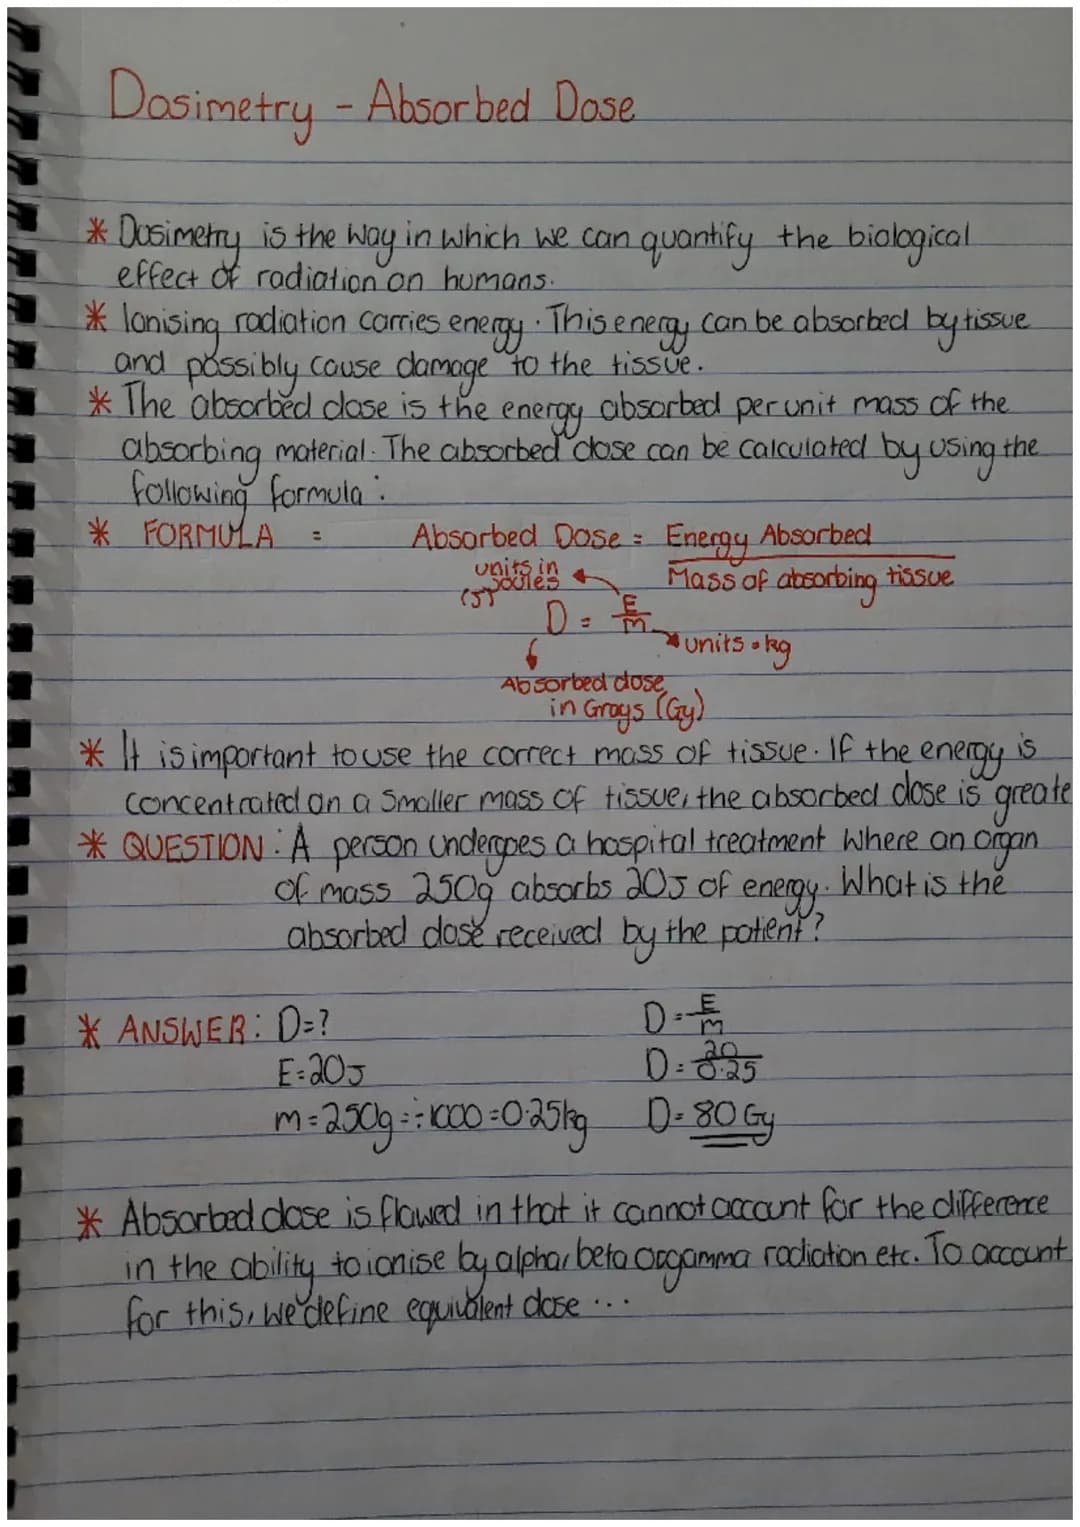 Dosimetry - Absorbed Dose
* Dosimetry is the way in which we can quantify the biological
effect of radiation on humans.
* Ionising radiation carries energy. This energy can be absorbed by tissue
and possibly cause damage to the tissue.
* The absorbed dose is the energy absorbed per unit mass of the
absorbing material. The absorbed dose can be calculated by using the
following formula:
* FORMULA = Absorbed Dose = Energy Absorbed
Mass of absorbing tissue
units in
joules
(J)
D = E
m
units = kg
Absorbed dose
in Grays (Gy)
* It is important to use the correct mass of tissue. If the energy is
concentrated on a smaller mass of tissue, the absorbed dose is greate
* QUESTION: A person undergoes a hospital treatment where an organ
of mass 250g absorbs 20J of energy. What is the
absorbed dose received by the patient?
* ANSWER: D=? D=E
m
E=20J D=20
0.25
m=250g=÷1000=0.25kg D=80Gy
* Absorbed dose is flawed in that it cannot account for the difference
in the ability to ionise by alpha, beta or gamma radiation etc. To account
for this, we define equivalent dose ...